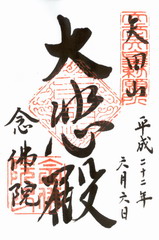 矢田山
平成二十二年
六月六日
大悲殿
念佛院